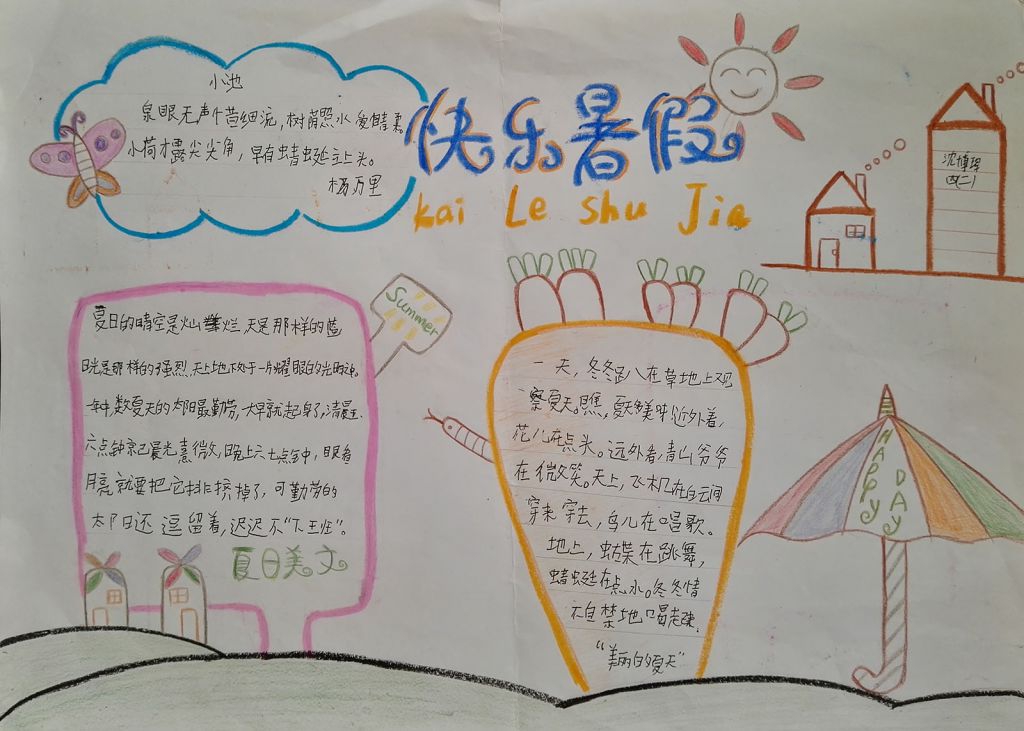 小池
泉眼无声惜细流,树荫照水爱晴柔。
小荷才露尖尖角,早有蜻蜓立上头。
杨万里
快乐暑假
kai Le shu Jia
沈
四(二)
Summer
夏日的晴空是灿烂,天是那样的蓝
日光是那样的强烈,天上地下处于一片耀眼的光明之中。
一年中,数夏天的太阳最勤劳,大早就起身了,清晨
六点钟就已晨光熹微,晚上六七点钟,眼看
月亮就要把它排挤掉了,可勤劳的
太阳还逗留着,迟迟不“下班”。
夏日美文
一天,冬冬趴在草地上观
察夏天。瞧,夏天多美呀!近处看,
花儿在点头。远处看,青山爷爷
在微笑。天上,飞机在白云间
穿来穿去,鸟儿在唱歌。
地上,蝴蝶在跳舞,
蜻蜓在点水。冬冬情
不自禁地唱起来:
“美丽的夏天”
HAPPY DAY